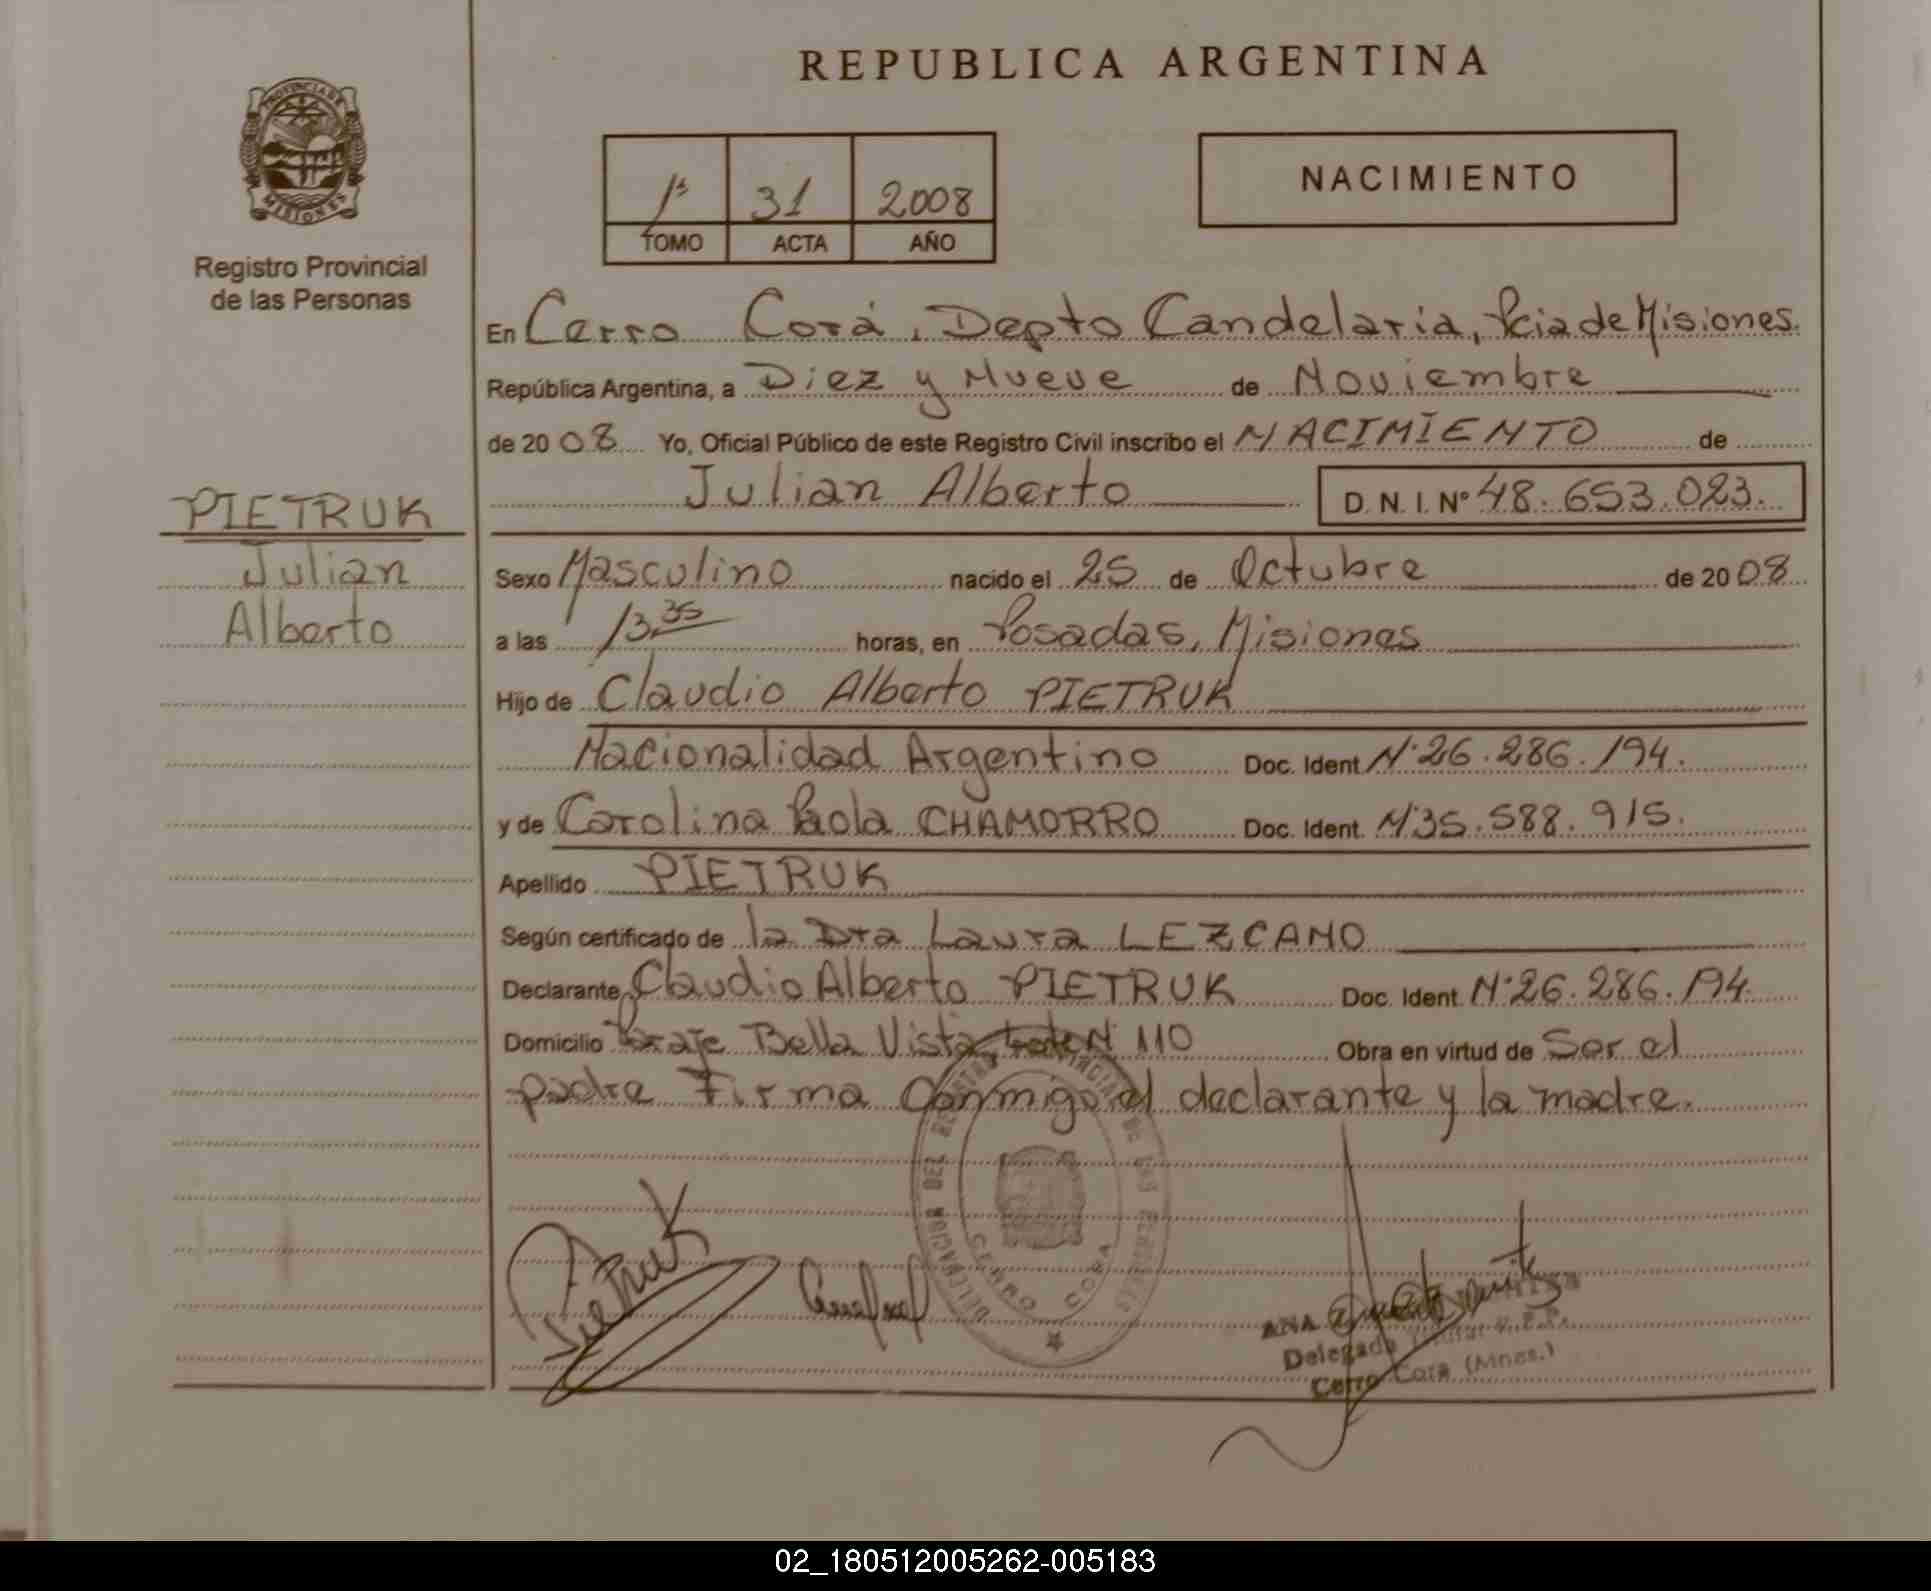 REPUBLICA ARGENTINA
PROVINCIA DE
MISIONES
Registro Provincial
de las Personas
1ª 31 2008
TOMO ACTA AÑO
NACIMIENTO
En Cerro Corá, Depto Candelaria, Pcia de Misiones.
República Argentina, a Diez y Nueve de Noviembre
de 2008 Yo, Oficial Público de este Registro Civil inscribo el NACIMIENTO de
Julian Alberto D. N. I. Nº 48.653.023.
PIETRUK
Julian
Alberto
Sexo Masculino nacido el 25 de Octubre de 2008
a las 13,35 horas, en Posadas, Misiones
Hijo de Claudio Alberto PIETRUK
Nacionalidad Argentino Doc. Ident. Nº 26.286.194.
y de Carolina Paola CHAMORRO Doc. Ident. Nº 35.588.915.
Apellido PIETRUK
Según certificado de la Dra Laura LEZCANO
Declarante Claudio Alberto PIETRUK Doc. Ident. Nº 26.286.194.
Domicilio Paraje Bella Vista, Lote N 110 Obra en virtud de Ser el
padre Firma Conmigo el declarante y la madre.
DELEGACION DEL REGISTRO PROVINCIAL DE LAS PERSONAS
CERRO CORA
Pietruk
ANA
Delegada Titular R.P.P.
Cerro Cora (Mnes.)
02_180512005262-005183